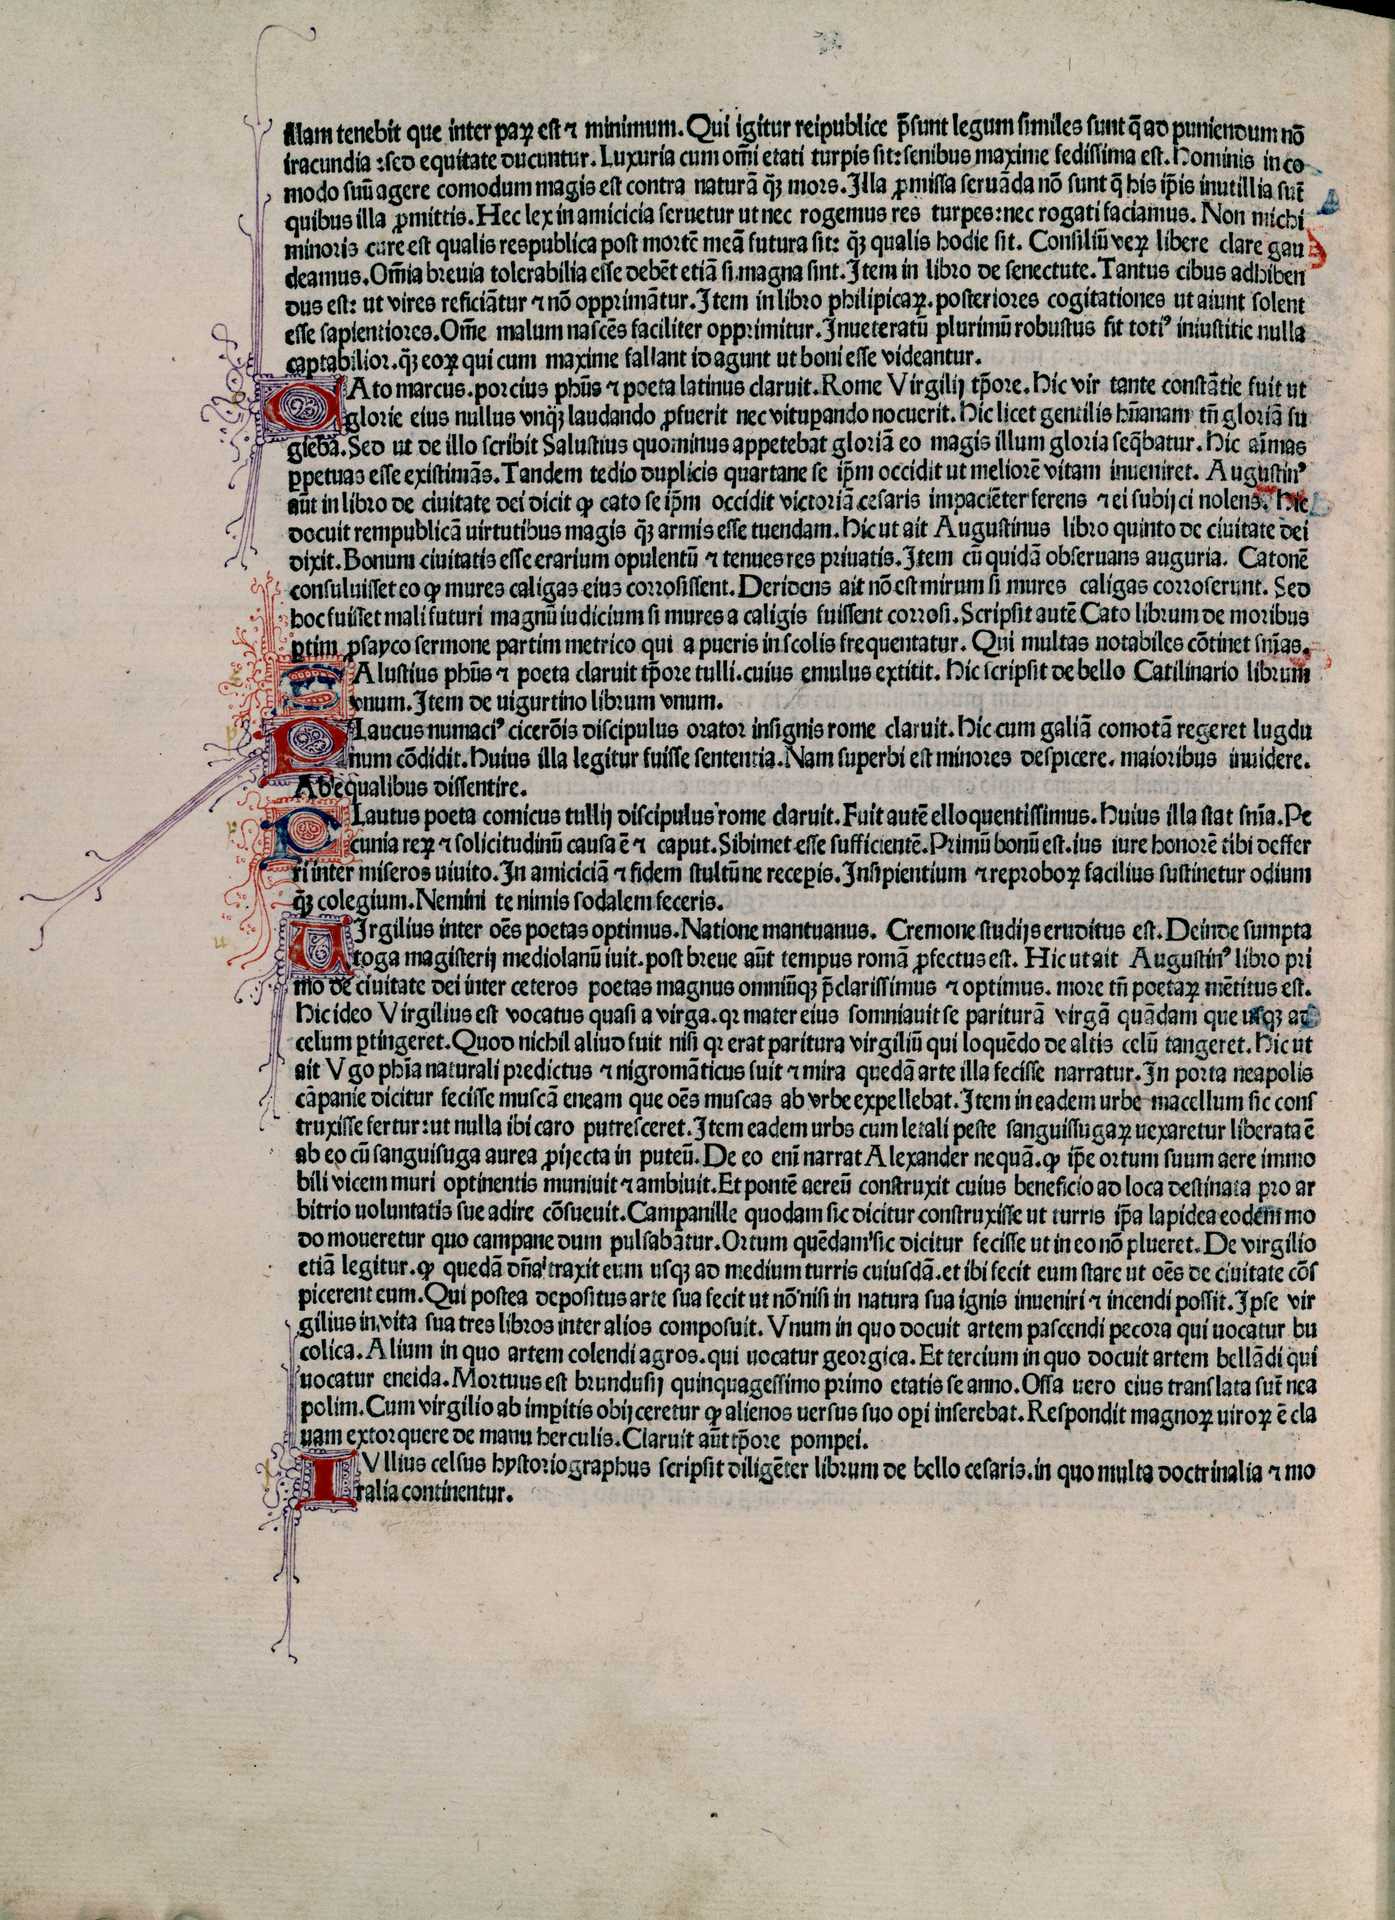 illam tenebit que inter paꝝ est ⁊ minimum. Qui igitur reipublice p̄sunt legum similes sunt q̄ ad puniendum nō
iracundia : sed equitate ducuntur. Luxuria cum om̄i etati turpis sit: senibus maxime fedissima est. Hominis in co
modo suū agere comodum magis est contra naturā qꝫ mors. Illa ꝓmissa seruāda nō sunt q̄ his ip̄is inutillia sūt
quibus illa ꝓmittis. Hec lex in amicicia seruetur ut nec rogemus res turpes: nec rogati faciamus. Non michi
minoris cure est qualis respublica post mortē meā futura sit: qꝫ qualis hodie sit. Consiliū veꝝ libere clare gau
deamus. Om̄ia breuia tolerabilia esse debēt etiā si magna sint. Item in libro de senectute. Tantus cibus adhiben
dus est: ut vires reficiātur ⁊ nō opprimātur. Item in libro philipicaꝝ. posteriores cogitationes ut aiunt solent
esse sapientiores. Om̄e malum nascēs faciliter opprimitur. Inueteratū plurimū robustus fit totiꝰ iniustitie nulla
captabilior. qꝫ eoꝝ qui cum maxime fallant id agunt ut boni esse videantur.
CAto marcus. porcius ph̄us ⁊ poeta latinus claruit. Rome Virgilij tp̄ore. Hic vir tante constātie fuit ut
glorie eius nullus vnqꝫ laudando ꝓfuerit nec vituꝑando nocuerit. Hic licet gentilis hūanam tn̄ gloriā fu
giebā. Sed ut de illo scribit Salustius quominus appetebat gloriā eo magis illum gloria seq̄batur. Hic aīmas
ꝑpetuas esse existimās. Tandem tedio duplicis quartane se ip̄m occidit ut meliorē vitam inueniret. Augustinꝰ
aūt in libro de ciuitate dei dicit ꝙ cato se ip̄m occidit victoriā cesaris impaciēter ferens ⁊ ei subijci nolens. Hic
docuit rempublicā uirtutibus magis qꝫ armis esse tuendam. Hic ut ait Augustinus libro quinto de ciuitate dei
dixit. Bonum ciuitatis esse erarium opulentū ⁊ tenues res priuatis. Item cū quidā obseruans auguria. Catonē
consuluisset eo ꝙ mures caligas eius corrosissent. Deridens ait nō est mirum si mures caligas corroserunt. Sed
hoc fuisset mali futuri magnū iudicium si mures a caligis fuissent corrosi. Scripsit autē Cato librum de moribus
ꝑtim ꝓsayco sermone partim metrico qui a pueris in scolis frequentatur. Qui multas notabiles cōtinet sn̄ias.
SAlustius ph̄us ⁊ poeta claruit tp̄ore tulli. cuius emulus extitit. Hic scripsit de bello Catilinario librum
vnum. Item de uigurtino librum vnum.
PLaucus numaciꝰ cicerōis discipulus orator insignis rome claruit. Hic cum galiā comotā regeret lugdu
num cōdidit. Huius illa legitur fuisse sententia. Nam superbi est minores despicere. maioribus inuidere.
Ab equalibus dissentire.
PLautus poeta comicus tullij discipulus rome claruit. Fuit autē elloquentissimus. Huius illa stat sn̄ia. Pe
cunia reꝝ ⁊ solicitudinū causa ē ⁊ caput. Sibimet esse sufficientē. Primū bonū est. ius iure honorē tibi deffer
ri inter miseros uiuito. In amiciciā ⁊ fidem stultū ne receꝑis. Insipientium ⁊ reproboꝝ facilius sustinetur odium
qꝫ colegium. Nemini te nimis sodalem feceris.
UIrgilius inter oēs poetas optimus. Natione mantuanus. Cremone studijs eruditus est. Deinde sumpta
toga magisterij mediolanū iuit. post breue aūt tempus romā ꝓfectus est. Hic ut ait Augustinꝰ libro pri
mo de ciuitate dei inter ceteros poetas magnus omniūqꝫ p̄clarissimus ⁊ optimus. more tn̄ poetaꝝ mētitus est.
Hic ideo Virgilius est vocatus quasi a virga. qꝛ mater eius somniauit se pariturā virgā quādam que usqꝫ ad
celum ꝑtingeret. Quod nichil aliud fuit nisi qꝛ erat paritura virgiliū qui loquēdo de altis celū tangeret. Hic ut
ait Vgo ph̄ia naturali predictus ⁊ nigromāticus fuit ⁊ mira quedā arte illa fecisse narratur. In porta neapolis
cāpanie dicitur fecisse muscā eneam que oēs muscas ab vrbe expellebat. Item in eadem urbe macellum sic cons
truxisse fertur: ut nulla ibi caro putresceret. Item eadem urbs cum letali peste sanguissugaꝝ uexaretur liberata ē
ab eo cū sanguisuga aurea ꝓijecta in puteū. De eo enī narrat Alexander nequā. ꝙ ip̄e ortum suum aere immo
bili vicem muri optinentis muniuit ⁊ ambiuit. Et pontē aereū construxit cuius beneficio ad loca destinata pro ar
bitrio uoluntatis sue adire cōsueuit. Campanille quodam sic dicitur construxisse ut turris ip̄a lapidea eodem mo
do moueretur quo campane dum pulsabātur. Ortum quēdam sic dicitur fecisse ut in eo nō plueret. De virgilio
etiā legitur. ꝙ quedā dn̄a traxit eum usqꝫ ad medium turris cuiusdā. et ibi fecit eum stare ut oēs de ciuitate cōs
picerent eum. Qui postea depositus arte sua fecit ut nō nisi in natura sua ignis inueniri ⁊ incendi possit. Ipse vir
gilius in vita sua tres libros inter alios composuit. Vnum in quo docuit artem pascendi pecora qui uocatur bu
colica. Alium in quo artem colendi agros. qui uocatur georgica. Et tercium in quo docuit artem bellādi qui
uocatur eneida. Mortuus est brundusij quinquagessimo primo etatis se anno. Ossa uero eius translata sūt nea
polim. Cum virgilio ab imꝑitis obijceretur ꝙ alienos uersus suo oꝑi inserebat. Respondit magnoꝝ uiroꝝ ē cla
uam extorquere de manu herculis. Claruit aūt tp̄ore pompei.
IVllius celsus hystoriographus scripsit diligēter librum de bello cesaris. in quo multa doctrinalia ⁊ mo
ralia continentur.